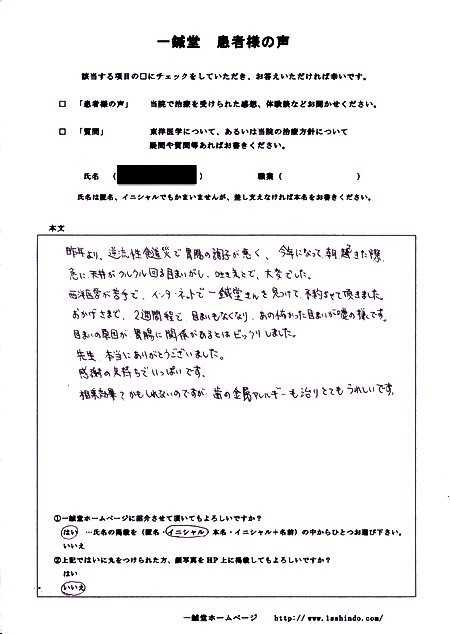 一鍼堂 患者様の声
該当する項目の□にチェックをしていただき、お答えいただければ幸いです。
□ 「患者様の声」 当院で治療を受けられた感想、体験談などお聞かせください。
□ 「質問」 東洋医学について、あるいは当院の治療方針について
疑問や質問等あればお書きください。
氏名 ( ) 職業 ( )
氏名は匿名、イニシャルでもかまいませんが、差し支えなければ本名をお書きください。
本文
昨年より、逆流性食道炎で胃腸の調子が悪く、今年になって朝起きた際、
急に天井がクルクル回る目まいがし、吐き気とで、大変でした。
西洋医学が苦手で、インターネットで一鍼堂さんを見つけて予約させて頂きました。
おかげさまで、2週間程で目まいもなくなり、あの怖かった目まいが嘘の様です。
目まいの原因が胃腸に関係があるとはビックリしました。
先生、本当にありがとうございました。
感謝の気持ちでいっぱいです。
相乗効果?かもしれないのですが歯の金属アレルギーも治りとてもうれしいです。
①一鍼堂ホームページに紹介させて頂いてもよろしいですか?
はい …氏名の掲載を(匿名・イニシャル・本名・イニシャル+名前)の中からひとつお選び下さい。
いいえ
②上記ではいに丸をつけられた方、顔写真をHP上に掲載してもよろしいですか?
はい
いいえ
一鍼堂ホームページ http://www.isshindo.com/